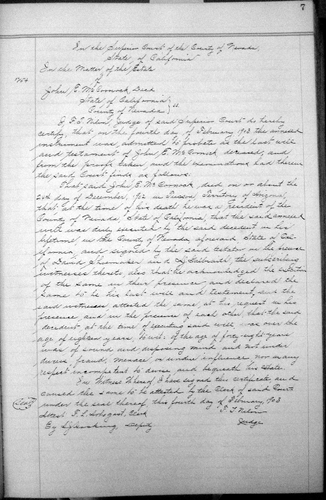 7
In the Superior Court of the County of Nevada,
State of California
In the Matter of the Estate
of
John E. McCormack Decd
State of California
County of Nevada } ss
I, F. T. Nilon, Judge of said Superior Court do hereby
certify, that on the fourth day of February 1913 the annexed
instrument was admitted to probate as the last will
and testament of John E. McCormack deceased, and
from the proofs taken and the examinations had therein
the said Court finds as follows:
That said John E. McCormack died on or about the
day of December, 1912 in
that at the time of his death he was a resident of the
County of Nevada, State of California, that the said annexed
will was duly executed by the said decedent in his
lifetime in the County of Nevada, aforesaid State of Cal-
ifornia and signed by the said testator in the presence
of and the subscribing
witnesses thereto also that he acknowledged the execution
of the same in their presence and declared the
same to be his last will and testament, and the
said witnesses attested the same, at his request in his
presence, and in the presence of each other; that the said
decedent, at the time of executing said will was over the
age of eighteen years, to wit: of the age of forty eight years
was of sound and disposing mind and not under
duress, fraud, menace or undue influence nor in any
respect incompetent to devise and bequeath his estate.
In Witness Whereof I have signed this certificate, and
caused the same to be attested by the Clerk of said Court
under the seal thereof this fourth day of February, 1913
(Seal)
Attest Clerk F. T. Nilon
By Deputy Judge